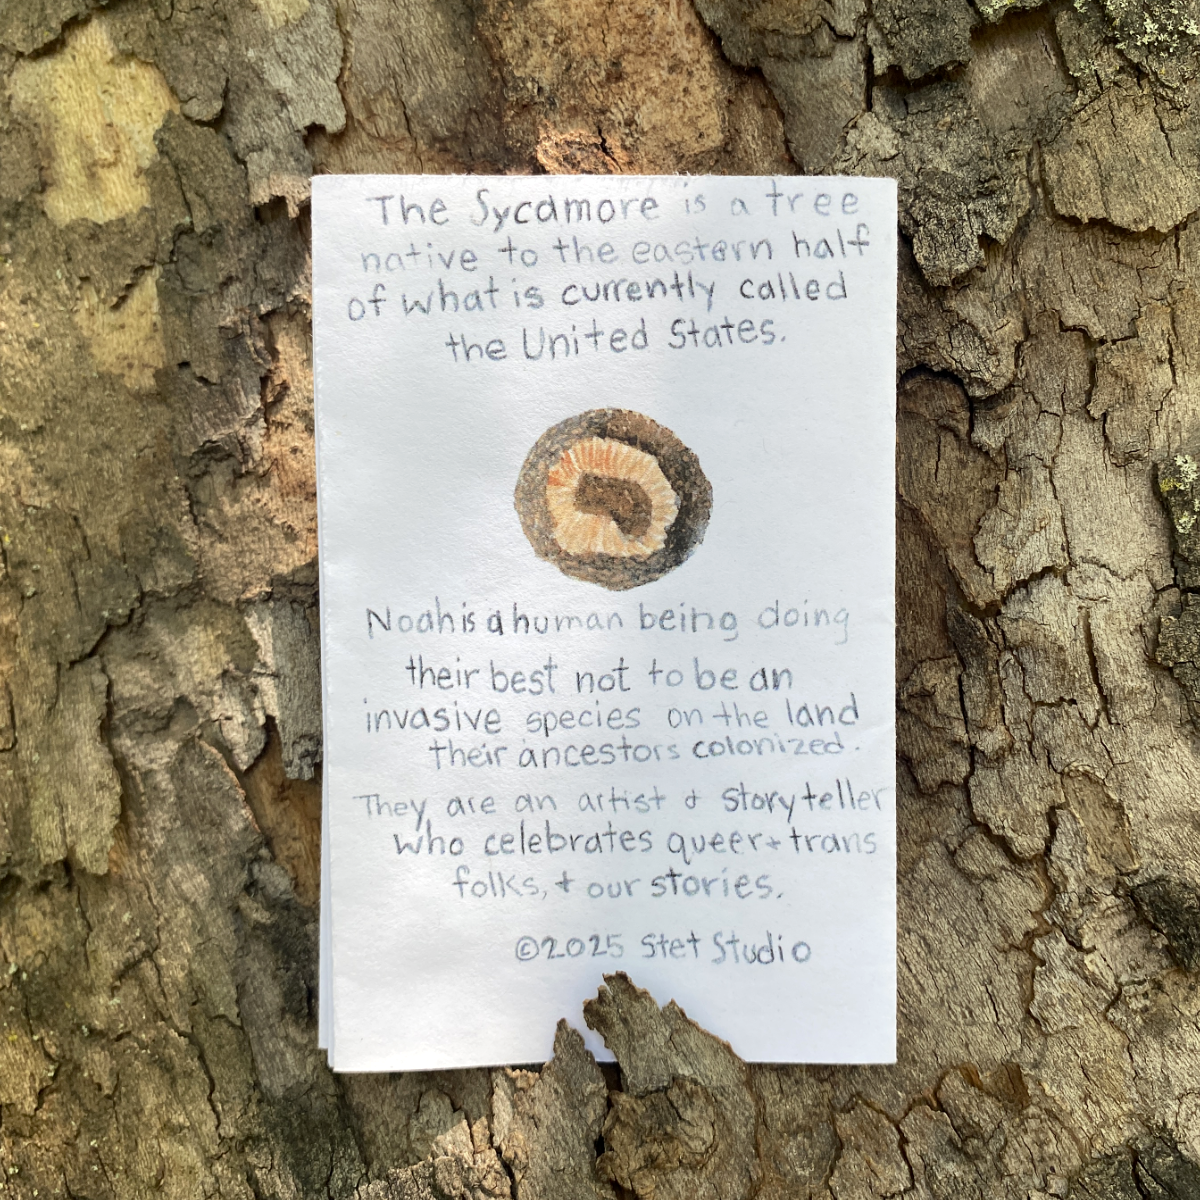 The Sycamore is a tree
native to the eastern half
of what is currently called
the United States.
Noah is a human being doing
their best not to be an
invasive species on the land
their ancestors colonized.
They are an artist & storyteller
who celebrates queer + trans
folks, + our stories.
©2025 Stet Studio